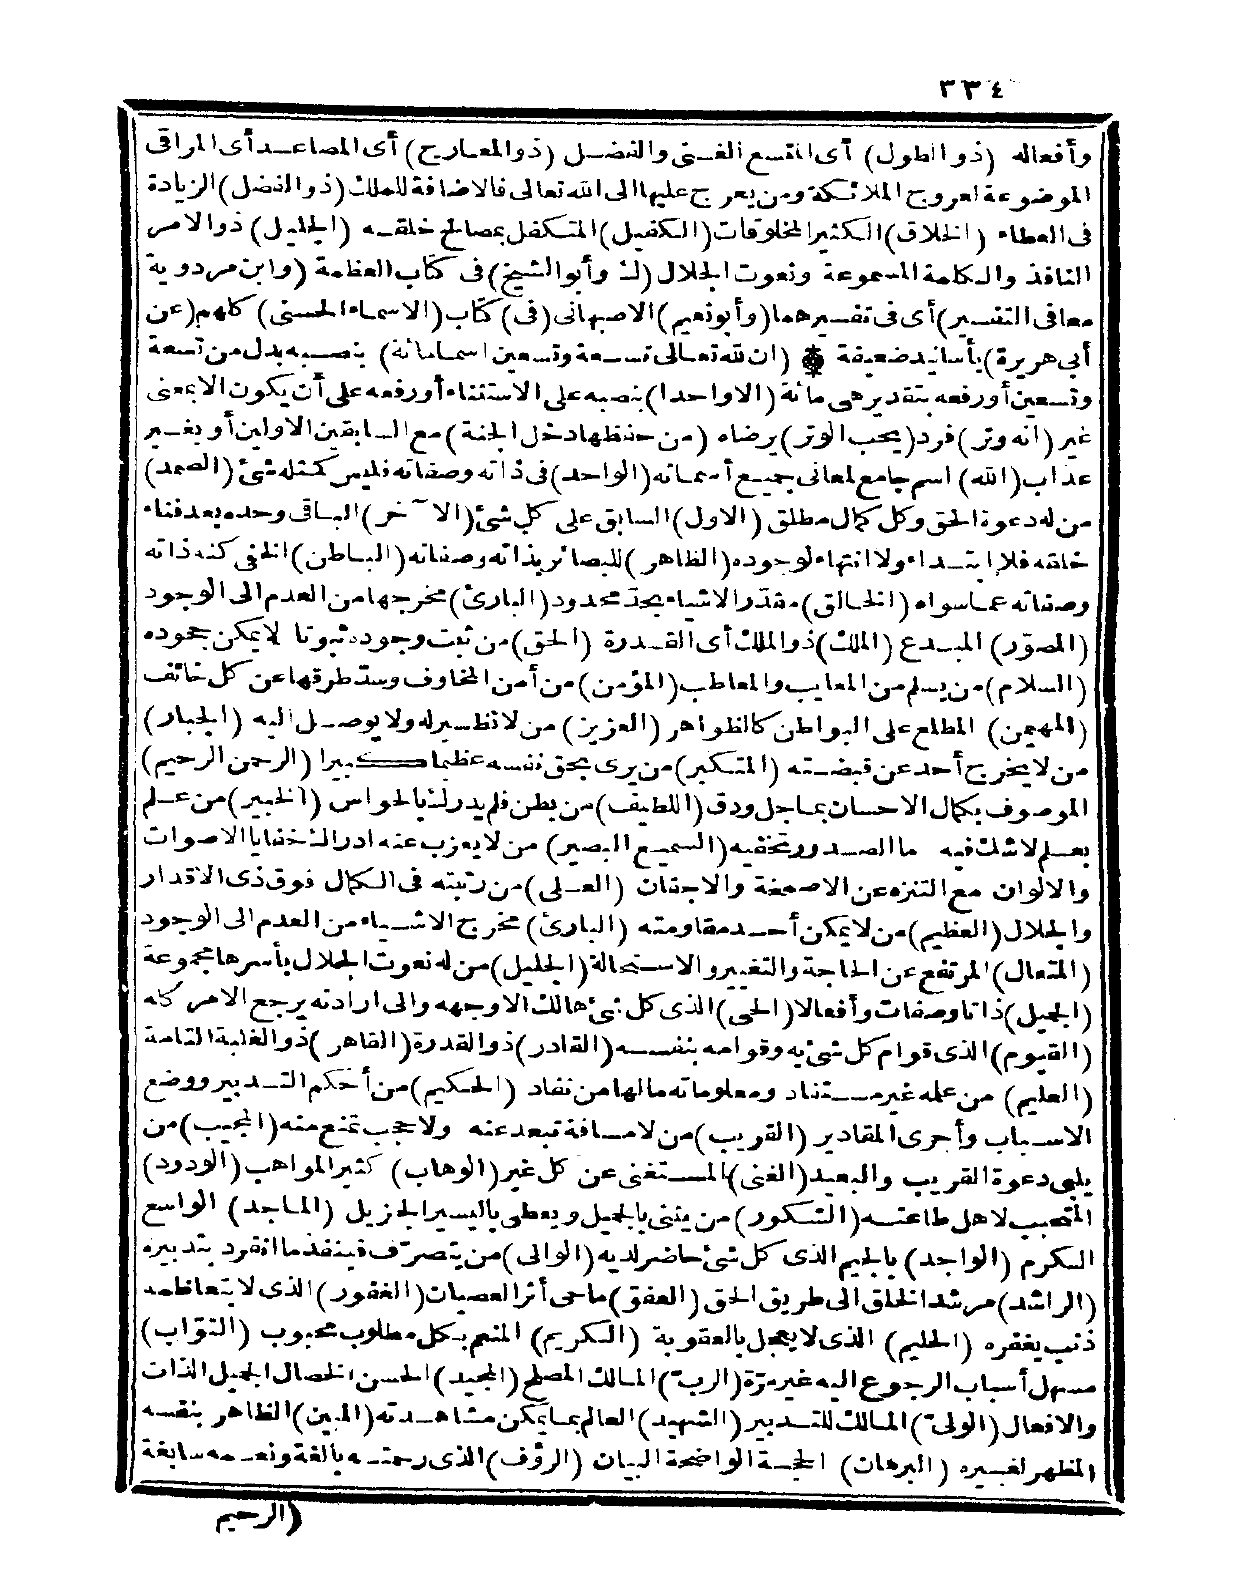 ٣٣٤
وأفعاله (ذو الطول) أى المتسع الغنى والفضل (ذو المعارج) أى المصاعد أى المراقى
الموضوعة لعروج الملائكة ومن يعرج عليها الى الله تعالى فالاضافة للملك (ذو الفضل) الزيادة
فى العطاء (الخلاق) الكثير المخلوقات (الكفيل) المتكفل بمصالح خلقه (الجليل) ذو الامر
النافذ والكلمة المسموعة ونعوت الجلال (ك وأبو الشيخ) فى كتاب العظمة (وابن مردوية
معا فى التفسير) أى فى تفسيرهما (وأبو نعيم) الاصبهانى (فى) كتاب (الاسماء الحسنى) كلهم (عن
أبى هريرة) بأسانيد ضعيفة (ان لله تعالى تسعة وتسعين اسما مائة) بنصبه بدل من تسعة
وتسعين أو رفعه بتقدير هى مائة (الا واحدا) بنصبه على الاستثناء أو رفعه على أن يكون الا بمعنى
غير (انه وتر) فرد (يحب الوتر) يرضاه (من حفظها دخل الجنة) مع السابقين الاولين أو بغير
عذاب (الله) اسم جامع لمعانى جميع أسمائه (الواحد) فى ذاته وصفاته فليس كمثله شئ (الصمد)
من له دعوة الحق وكل كمال مطلق (الاول) السابق على كل شئ (الآخر) الباقى وحده بعد فناء
خلقه فلا ابتداء ولا انتهاء لوجوده (الظاهر) للبصائر بذاته وصفاته (الباطن) الخفى كنه ذاته
وصفاته عما سواه (الخالق) مقدر الاشياء بحد محدود (البارئ) مخرجها من العدم الى الوجود
(المصوّر) المبدع (الملك) ذو الملك أى القدرة (الحق) من ثبت وجوده ثبوتا لا يمكن جحوده
(السلام) من يسلم من المعايب والمعاطب (المؤمن) من أمن المخاوف وسدّ طرقها عن كل خائف
(المهيمن) المطلع على البواطن كالظواهر (العزيز) من لا نظير له ولا يوصل اليه (الجبار)
من لا يخرج أحد عن قبضته (المتكبر) من يرى بحق نفسه عظيما كبيرا (الرحمن الرحيم)
الموصوف بكمال الاحسان بما جل ودق (اللطيف) من بطن فلم يدرك بالحواس (الخبير) من علم
بعلم لا شك فيه ما الصدور تخفيه (السميع البصير) من لا يعزب عنه ادراك خفايا الاصوات
والالوان مع التنزه عن الاصمغة والاجفان (العلى) من رتبته فى الكمال فوق ذى الاقدار
والجلال (العظيم) من لا يمكن أحد مقاومته (البارئ) مخرج الاشياء من العدم الى الوجود
(المتعال) المرتفع عن الحاجة والتغيير والاستحالة (الجليل) من له نعوت الجلال بأسرها مجموعة
(الجميل) ذاتا وصفات وأفعالا (الحى) الذى كل شئ هالك الا وجهه والى ارادته يرجع الامر كله
(القيوم) الذى قوام كل شئ به وقوامه بنفسه (القادر) ذو القدرة (القاهر) ذو الغلبة التامة
(العليم) من علمه غير مستفاد ومعلوماته مالها من نفاد (الحكيم) من أحكم التدبير ووضع
الاسباب وأجرى المقادير (القريب) من لا مسافة تبعد عنه ولا حجب تمنع منه (المجيب) من
يلبى دعوة القريب والبعيد (الغنى) المستغنى عن كل غير (الوهاب) كثير المواهب (الودود)
المتحبب لاهل طاعته (الشكور) من يثنى بالجميل ويعطى باليسير الجزيل (الماجد) الواسع
الكرم (الواجد) بالجيم الذى كل شئ حاضر لديه (الوالى) من يتصرّف فينفذ ما انفرد بتدبيره
(الراشد) مرشد الخلق الى طريق الحق (العفوّ) ماحى أثر العصيان (الغفور) الذى لا يتعاظمه
ذنب يغفره (الحليم) الذى لا يعجل بالعقوبة (الكريم) المنعم بكل مطلوب محبوب (التواب)
مسهل أسباب الرجوع اليه غير مرّة (الربّ) المالك المصلح (المجيد) الحسن الخصال الجميل الذات
والافعال (الولىّ) المالك للتدبير (الشهيد) العالم بما يمكن مشاهدته (المبين) الظاهر بنفسه
المظهر لغيره (البرهان) الحجة الواضحة البيان (الرؤف) الذى رحمته بالغة ونعمه سابغة
(الرحيم